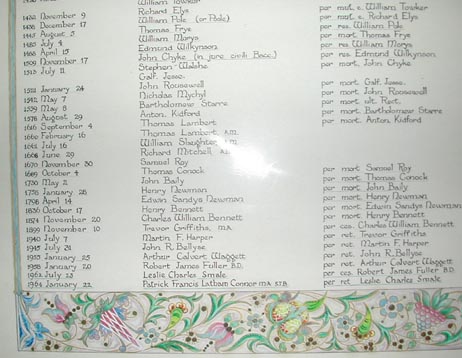 William Towker
1432 November 9 Richard Elys per mut. c. William Towker
1436 December 17 William Pole (or Pade) per mut. c. Richard Elys
1445 August 5 Thomas Frye per res. William Pole
1485 July 4 William Morys per mort. Thomas Frye
1488 April 15 Edmund Wilkynson per res. William Morys
1509 November 17 John Chyke (in jure civili Bacc.) per res. Edmund Wilkynson
1513 July 11 Stephen Walshe per mort. John Chyke
Galf. Jesse.
January 24 John Rousewell per mort. Galf. Jesse.
1542 May 7 Nicholas Mychyl per mort. John Rousewell
May 8 Bartholomew Starre per mort. ult. Rect.
1576 August 29 Anton. Kidford per mort. Bartholomew Starre
1616 September 4 Thomas Lambert per mort. Anton. Kidford
1660 February 16 Thomas Lambert A.M.
1662 July 16 William Slaughter A.M.
1668 June 29 Richard Mitchell A.B.
1670 November 30 Samuel Roy
1689 October 4 Thomas Conock per mort Samuel Roy
1730 May 11 John Baily per mort. Thomas Conock
1738 January 28 Henry Newman per mort. John Baily
1798 April 14 Edwin Sandys Newman per mort. Henry Newman
1836 October 17 Henry Bennett per mort. Edwin Sandys Newman
1874 November 20 Charles William Bennett per mort. Henry Bennett
1899 November 10 Trevor Griffiths, M.A. per ces. Charles William Bennett
1940 July 7 Martin F. Harper per ret. Trevor Griffiths
1945 July 31 John R. Bellyse per ret Martin F. Harper
1953 January 25 Arthur Calvert Waggett per ret. John R. Bellyse
1958 January 20 Robert James Fuller B.D. per ret. Arthur Calvert Waggett
1962 July 23 Leslie Charles Smale per ces. Robert James Fuller B.D.
1964 January 22 Patrick Francis Latham Connor M.A. S.T.B. per ret Leslie Charles Smale.